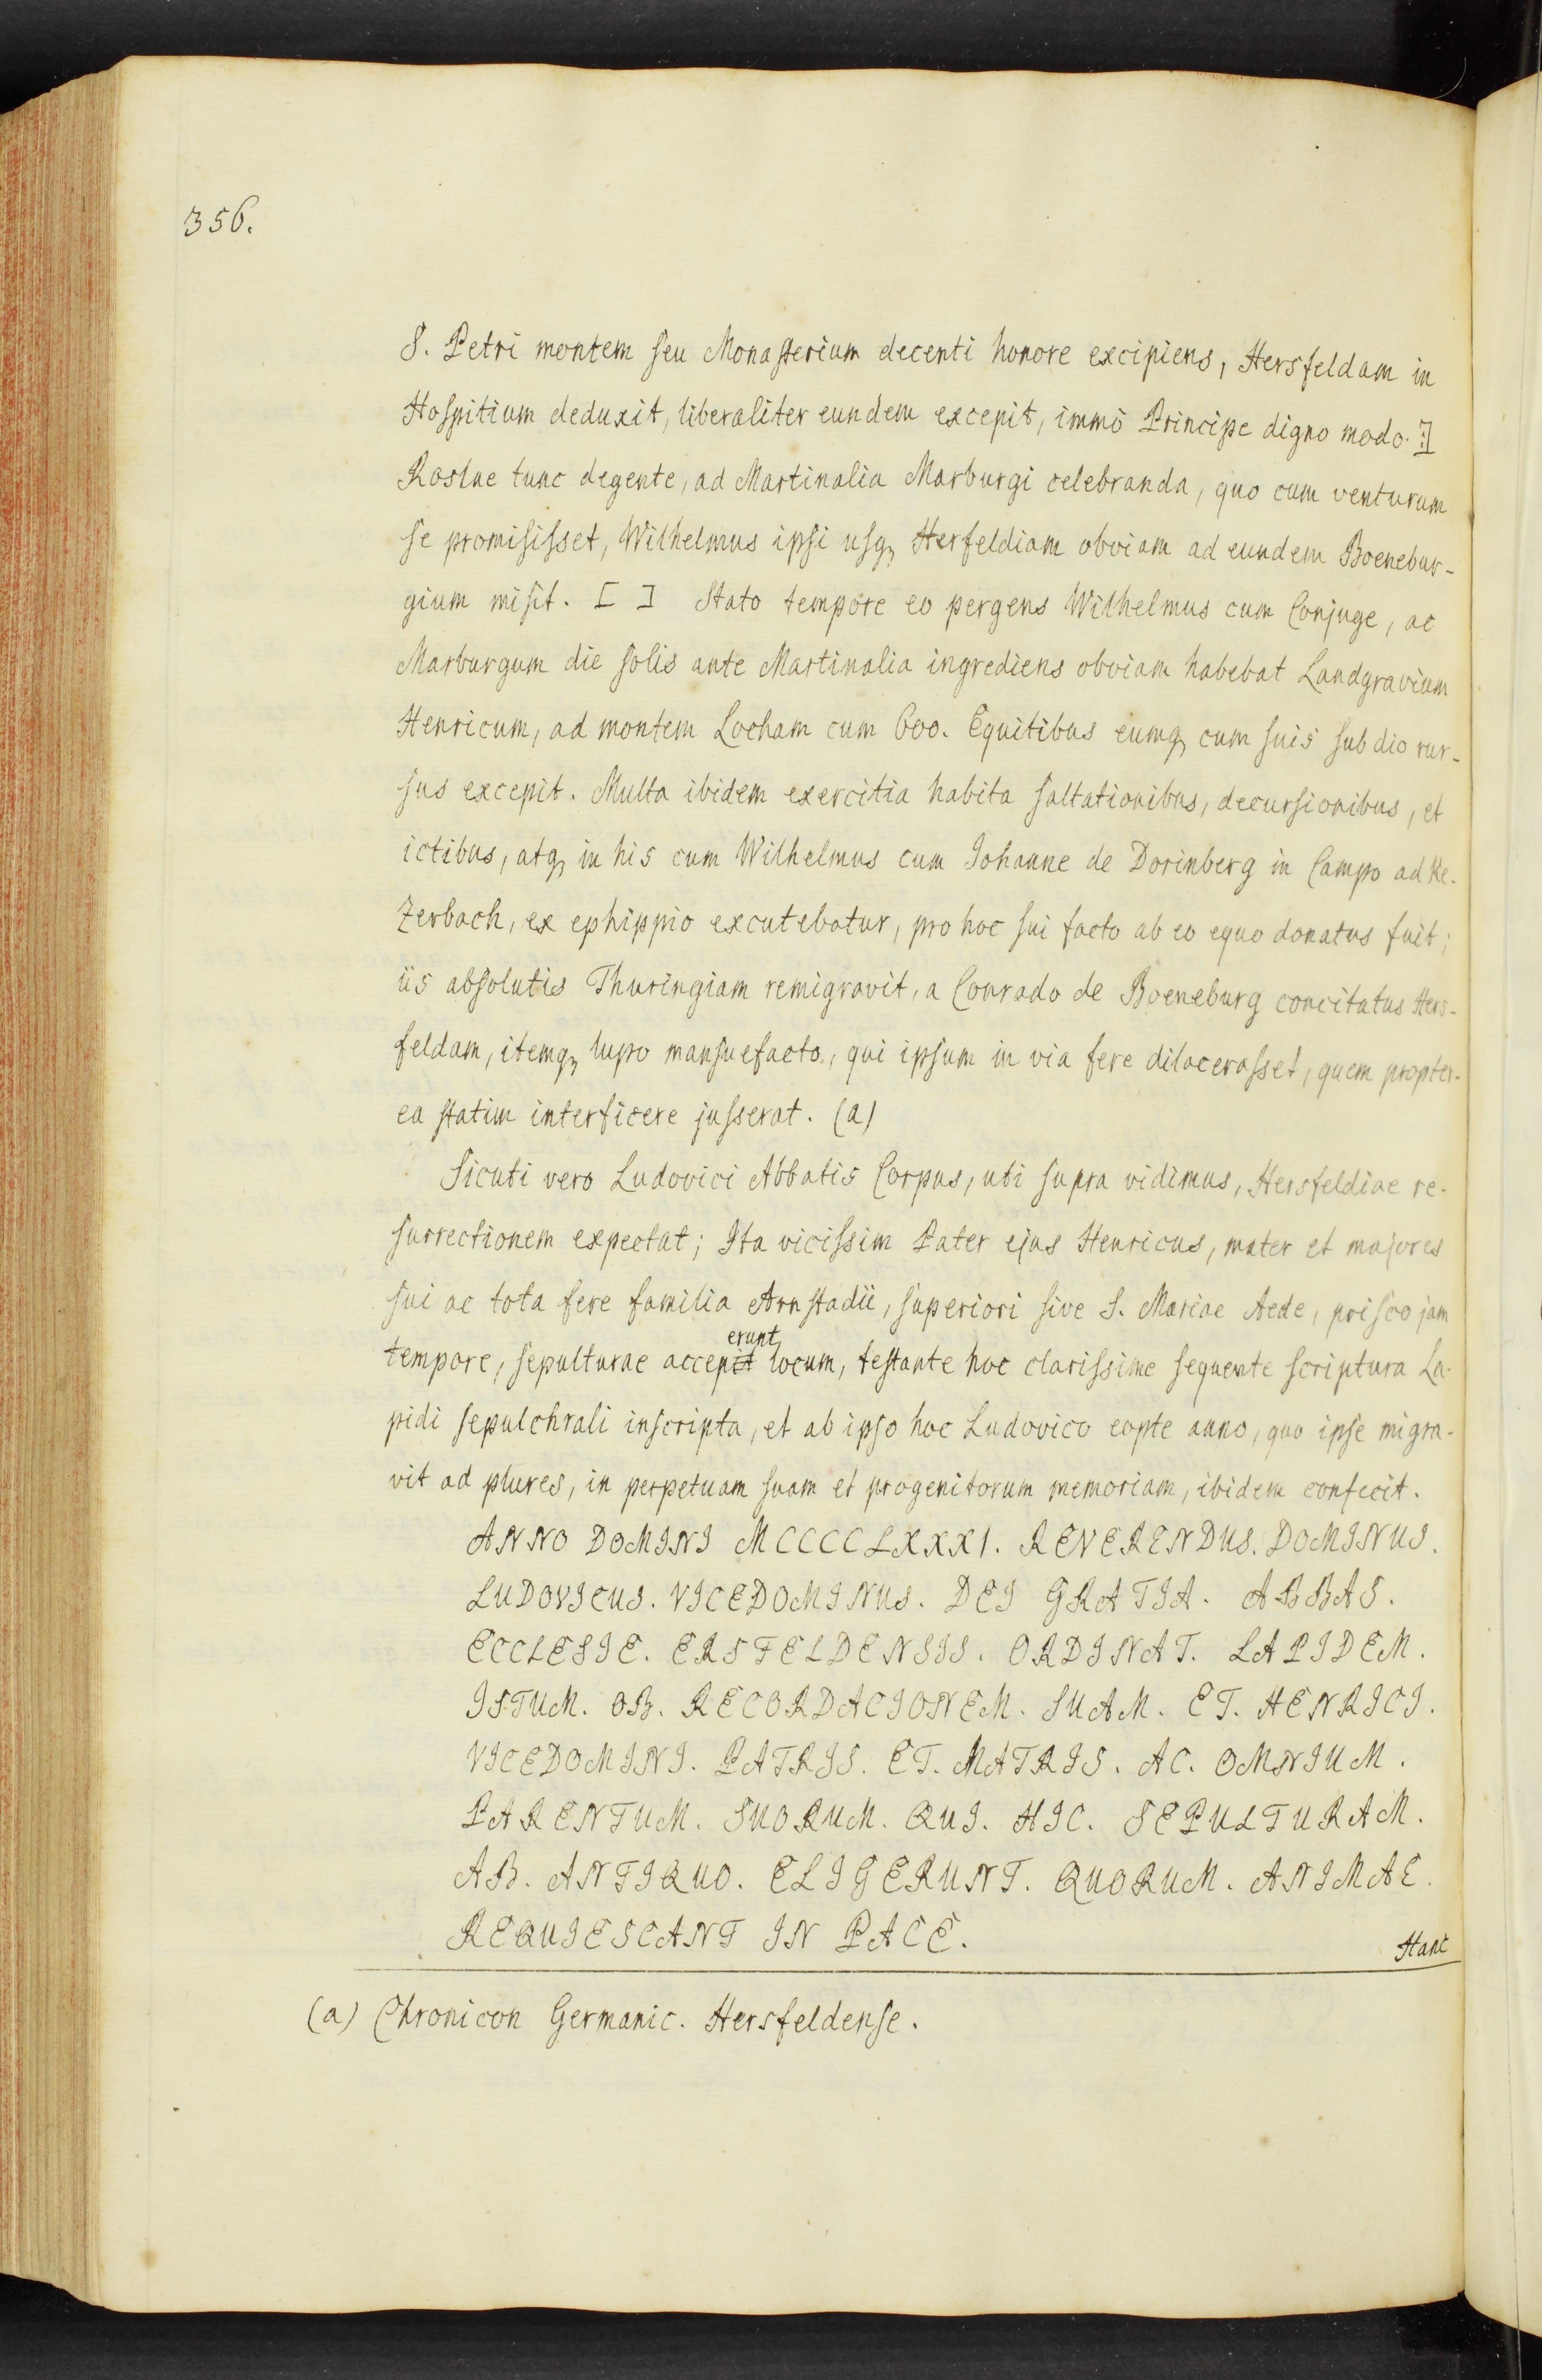 356.
S. Petri montem ſeu Monaſterium decenti honore excipiens, Hersfeldam in
Hoſpitium deduxit, liberaliter eundem excepit, immò Principe digno modo. :]
Roslae tunc degente, ad Martinalia Marburgi celebranda, quo cum venturum
ſe promiſiſset, Wilhelmus ipſi uſq₃ Herfeldiam obviam ad eundem Boenebur-
gium miſit. [ ] Stato tempore eo pergens Wilhelmus cum Conjuge, ac
Marburgum die ſolis ante Martinalia ingrediens obviam habebat Landgravium
Henricum, ad montem Locham cum 600. Equitibus eumq₃ cum ſuis ſub dio rur-
ſus excepit. Multa ibidem exercitia habita ſaltationibus, decurſionibus, et
ictibus, atq₃ in his cum Wilhelmus cum Johanne de Dorinberg in Campo ad Ke-
Zerbach, ex ephippio excutebatur, pro hoc ſui facto ab eo equo donatus fuit;
iis abſolutis Thuringiam remigravit, a Conrado de Boeneburg concitatus Hers-
feldam, itemq₃ lupo manſuefacto, qui ipſum in via fere dilaceraſset, quem propter-
ea ſtatim interficere juſserat. (a)
Sicuti vero Ludovici Abbatis Corpus, uti ſupra vidimus, Hersfeldiae re-
ſurrectionem expectat; Ita viciſsim Pater ejus Henricus, mater et majores
ſui ac tota fere familia Arnſtadii, ſuperiori ſive S. Mariae Aede, priſco jam
erunt
tempore, ſepulturae accepit locum, teſtante hoc clariſsime ſequente ſcriptura La-
pidi ſepulchrali inſcripta, et ab ipſo hoc Ludovico eopte anno, quo ipſe migra-
vit ad plures, in perpetuam ſuam et progenitorum memoriam, ibidem confecit.
ANNO DOMINI MCCCCLXXXI. REVERENDUS. DOMINUS.
LUDOVICUS. VICEDOMINUS. DEI GRATIA. ABBAS.
ECCLESIE. ERSFELDENSIS. ORDINAT. LAPIDEM.
ISTUM. OB. RECORDACIONEM. SUAM. ET. HENRICI.
VICEDOMINI. PATRIS. ET. MATRIS. AC. OMNIUM.
PARENTUM. SUORUM. QUI. HIC. SEPULTURAM.
AB. ANTIQUO. ELIGERUNT. QUORUM. ANIMAE.
REQUIESCANT IN PACE.
Hanc
(a) Chronicon Germanic. Hersfeldenſe.